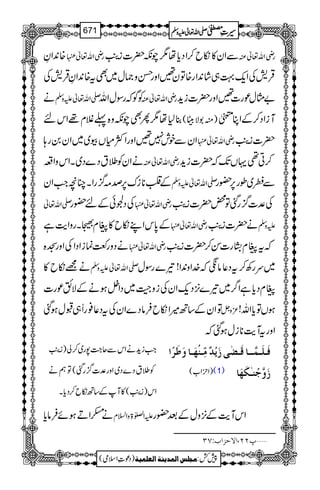 سیرتِ مصطفیٰ صلی اللہ تعالیٰ علیہ وسلم
671
رضی اللہ تعالیٰ عنہ سے ان کا نکاح کرا دیا مگر چونکہ حضرت زینب رضی اللہ تعالیٰ عنہا خاندانِ
قریش کی ایک بہت ہی شاندار خاتون تھیں اور حسن و جمال میں بھی یہ خاندان قریش کی
بے مثال عورت تھیں اور حضرت زید رضی اللہ تعالیٰ عنہ کو گو کہ رسول اللہ صلی اللہ تعالیٰ علیہ وسلم نے
آزاد کر کے اپنا متبنٰی (منہ بولا بیٹا) بنا لیا تھا مگر پھر بھی چونکہ وہ پہلے غلام تھے اس لئے
حضرت زینب رضی اللہ تعالیٰ عنہا ان سے خوش نہیں تھیں اور اکثر میاں بیوی میں ان بن رہا
کرتی تھی یہاں تک کہ حضرت زید رضی اللہ تعالیٰ عنہ نے ان کو طلاق دے دی۔ اس واقعہ
سے فطری طور پر حضور صلی اللہ تعالیٰ علیہ وسلم کے قلب نازک پر صدمہ گزرا۔ چنانچہ جب ان
کی عدت گزر گئی تو محض حضرت زینب رضی اللہ تعالیٰ عنہا کی دلجوئی کے لئے حضور صلی اللہ تعالیٰ
علیہ وسلم نے حضرت زینب رضی اللہ تعالیٰ عنہا کے پاس اپنے نکاح کا پیغام بھیجا۔ روایت ہے
کہ یہ پیغام بشارت سن کر حضرت زینب رضی اللہ تعالیٰ عنہا نے دو رکعت نماز ادا کی اور سجدہ
میں سر رکھ کر یہ دعا مانگی کہ خداوندا! تیرے رسول صلی اللہ تعالیٰ علیہ وسلم نے مجھے نکاح کا
پیغام دیا ہے اگر میں تیرے نزدیک ان کی زوجیت میں داخل ہونے کے لائق عورت
ہوں تو یا اللہ! عزوجل تو ان کے ساتھ میرا نکاح فرما دے ان کی یہ دعا فوراً ہی قبول ہو گئی
اور یہ آیت نازل ہو گئی کہ
فَلَمَّا قَضٰى زَيْدٌ مِّنْهَا وَطَرًا زَوَّجْنٰكَهَا (1) (احزاب)
جب زید نے اس سے حاجت پوری کر لی (زینب
کو طلاق دے دی اور عدت گزر گئی) تو ہم نے
اس (زینب) کا آپ کے ساتھ نکاح کر دیا۔
اس آیت کے نزول کے بعد حضور علیہ الصلوٰۃ والسلام نے مسکراتے ہوئے فرمایا
پ۲۲، الاحزاب:۳۷
پیش کش: مجلس المدینۃ العلمیۃ (دعوتِ اسلامی)